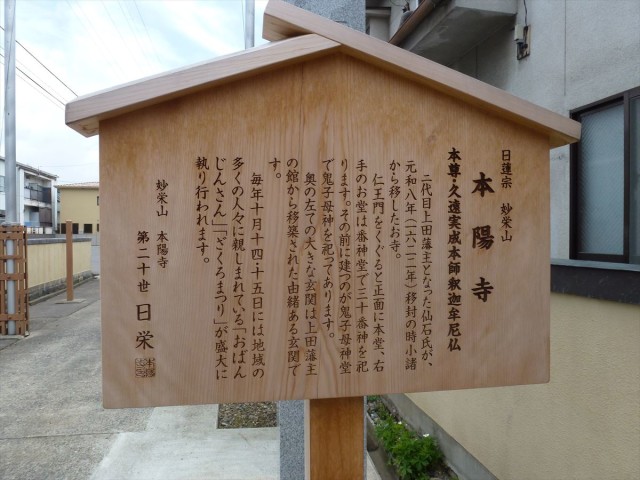 日蓮宗　妙栄山
本陽寺
本尊・久遠実成本師釈迦牟尼仏
二代目上田藩主となった仙石氏が、
元和八年（一六二二年）移封の時小諸
から移したお寺。
仁王門をくぐると正面に本堂、右
手のお堂は番神堂で三十番神を祀
ります。その前に建つのが鬼子母神堂
で鬼子母神を祀ってあります。
奥の左ての大きな玄関は上田藩主
の館から移築された由緒ある玄関で
す。
毎年十月十四・十五日には地域の
多くの人々に親しまれている「おばん
じんさん」「ざくろまつり」が盛大に
執り行われます。
妙栄山　本陽寺
第二十世　日栄